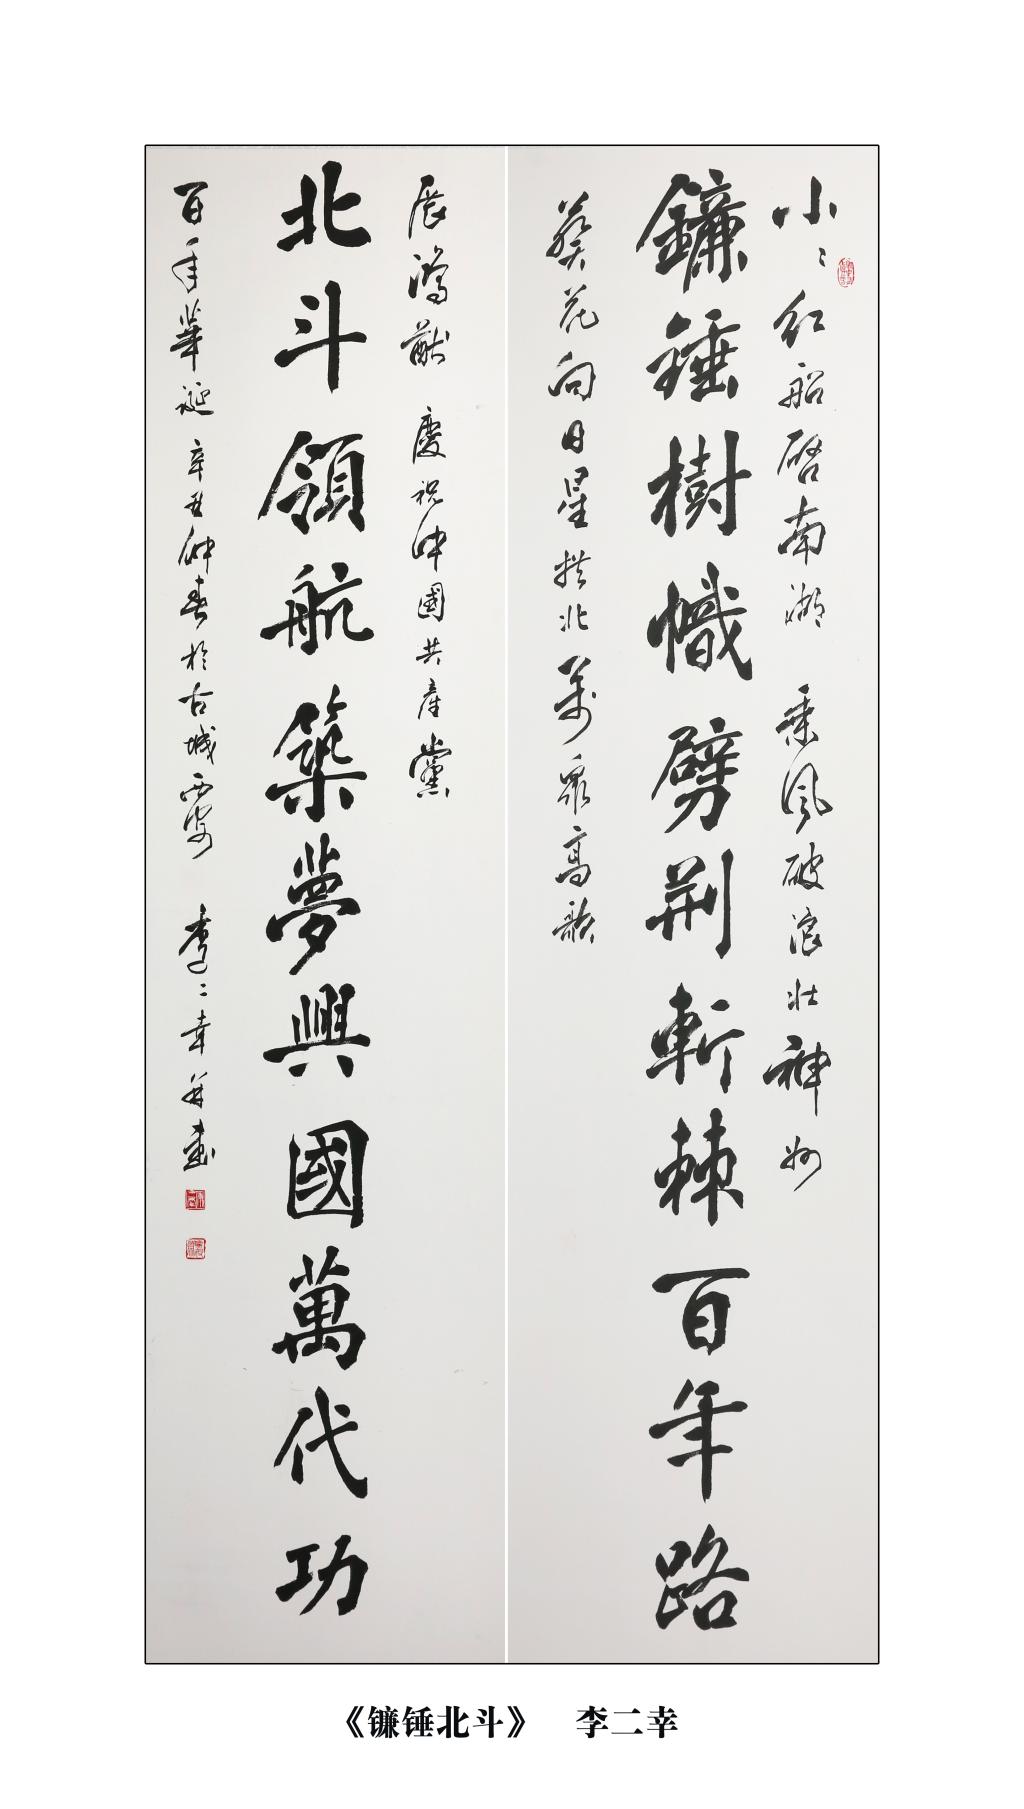 小〻红船启南湖 乘风破浪壮神州
鐮錘樹幟劈荆斬棘百年路
葵花向日星拱北万众高歌
展鴻猷 慶祝中國共産黨
北斗領航築夢興國萬代功
百年華诞 辛丑仲春於古城西安 李二幸并書
《镰锤北斗》 李二幸